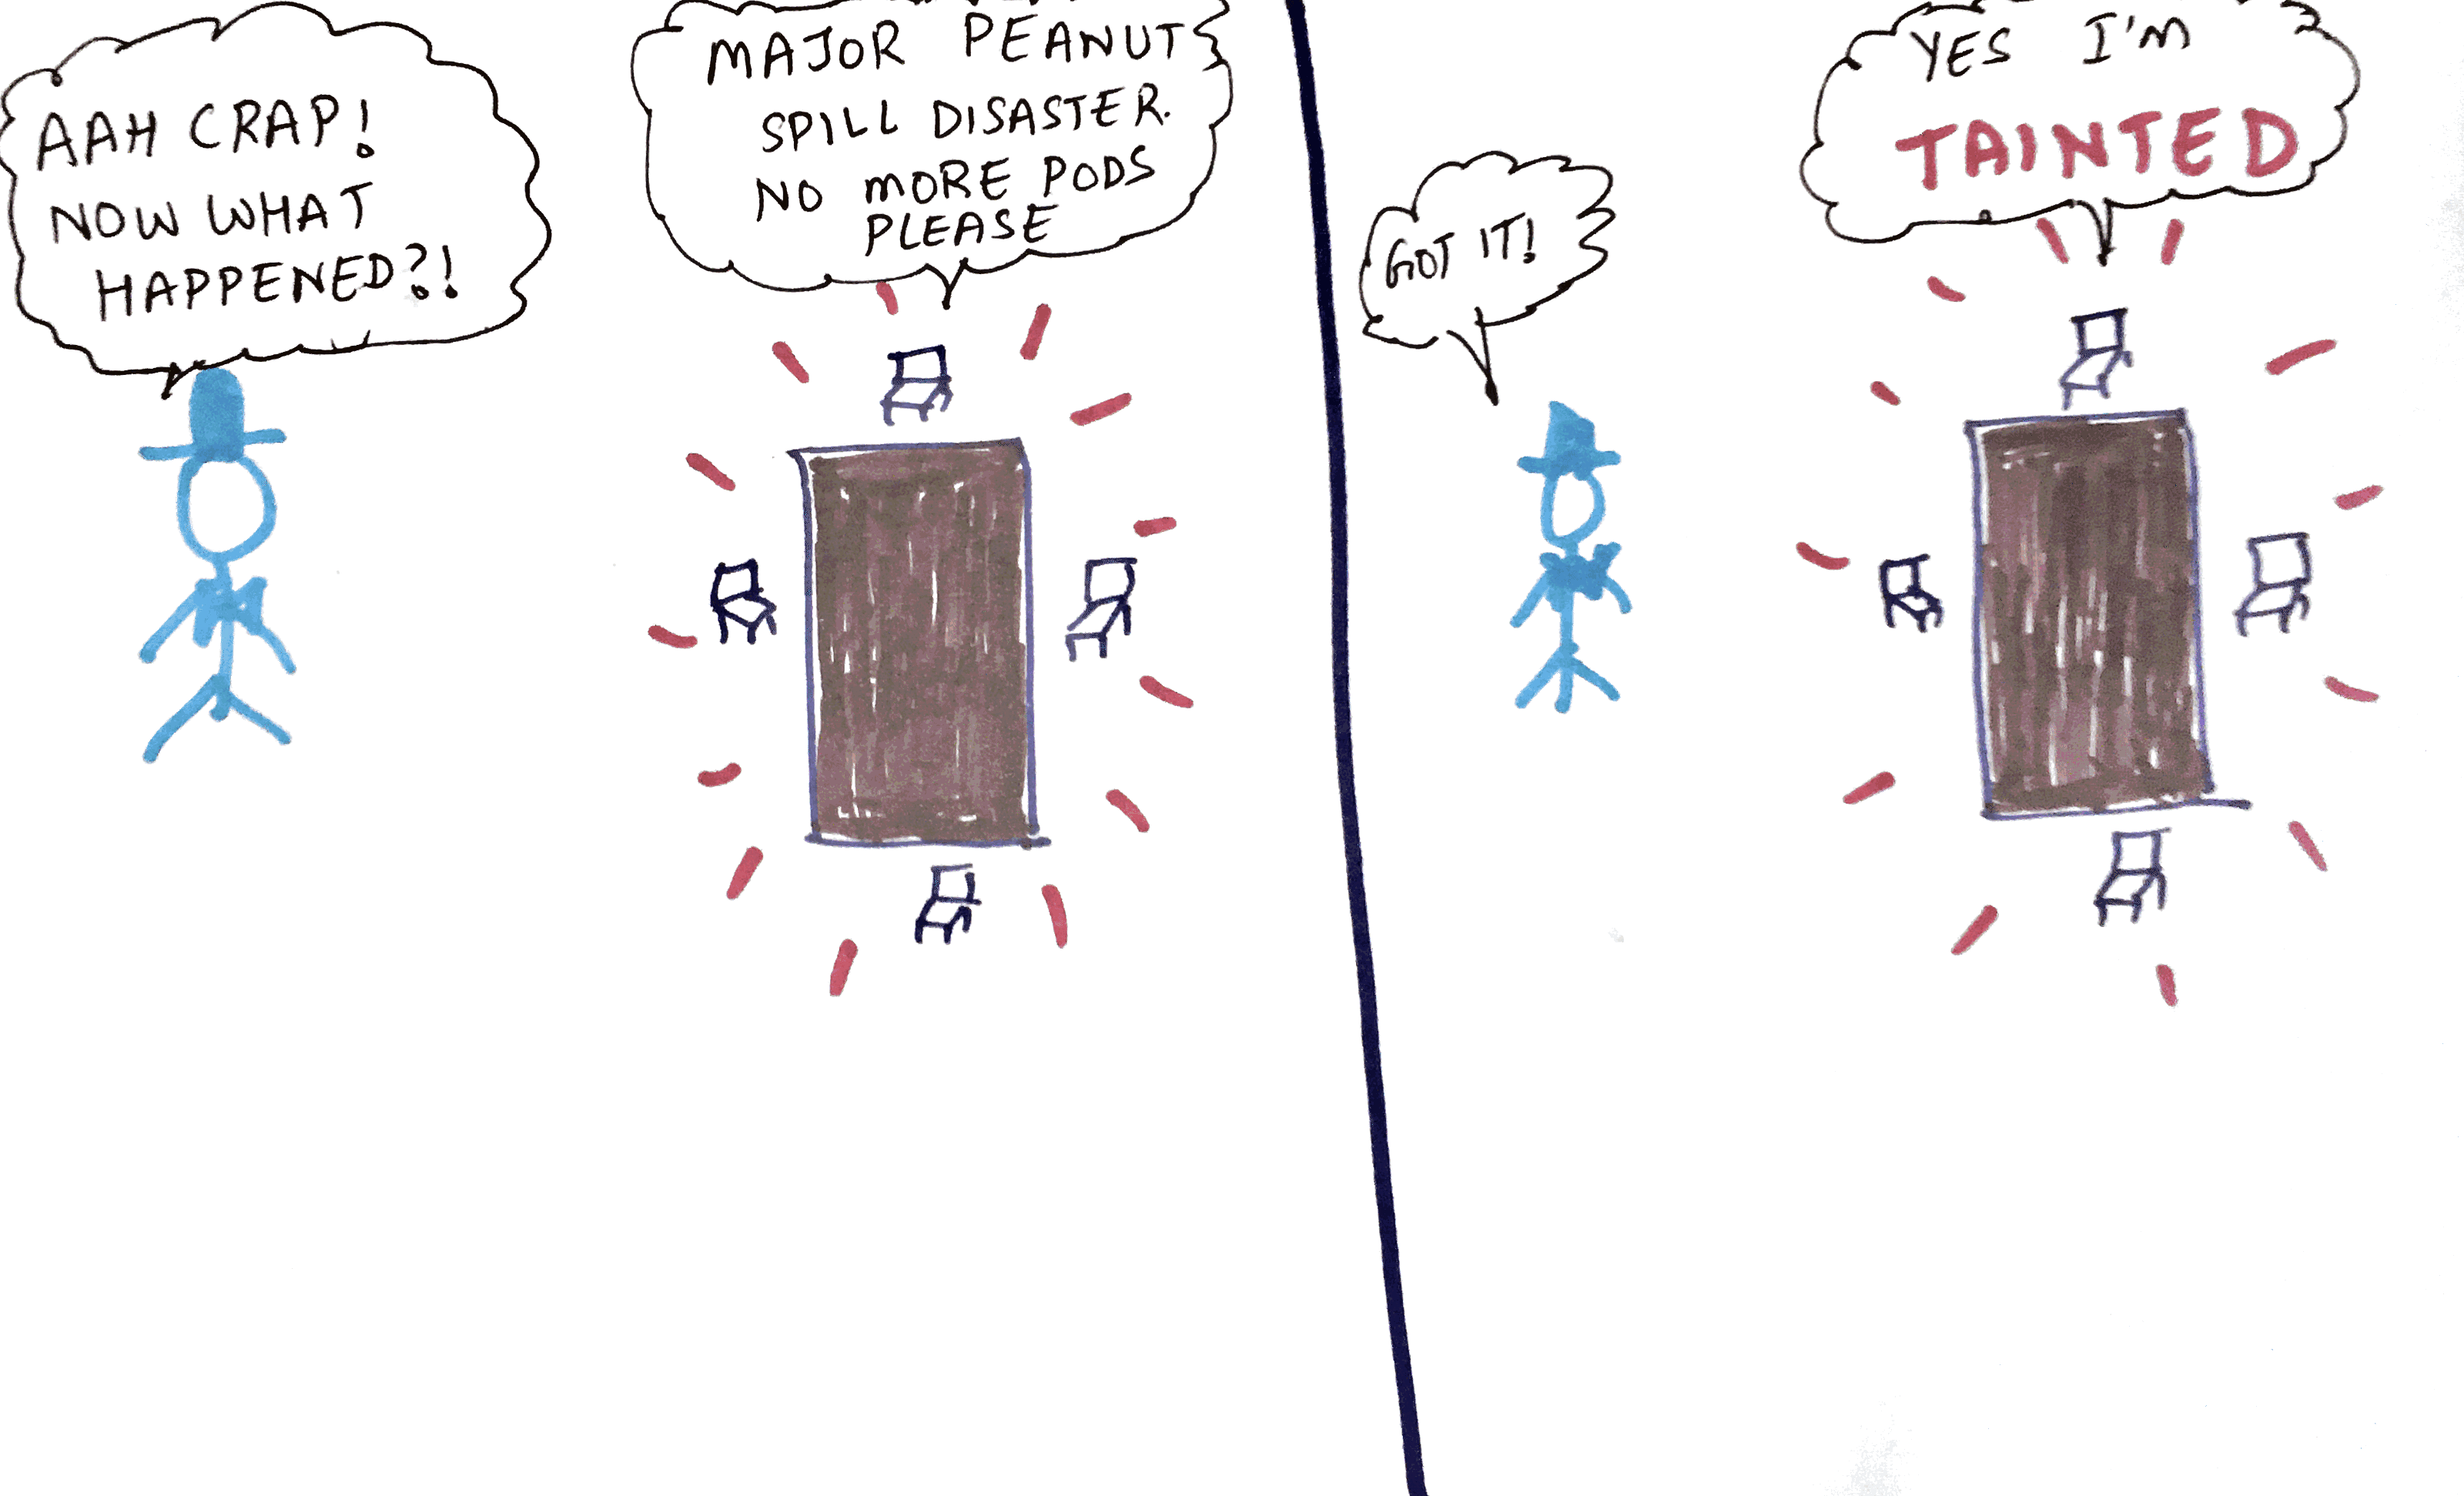 AAH CRAP!
NOW WHAT
HAPPENED?!
MAJOR PEANUT
SPILL DISASTER.
NO MORE PODS
PLEASE
GOT IT!
YES I'M
TAINTED